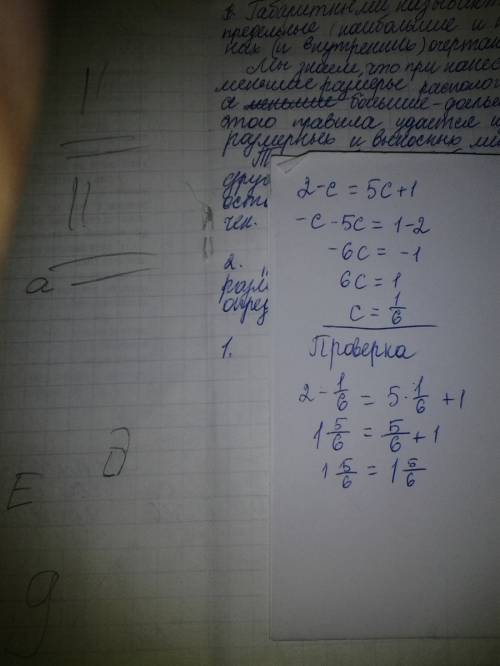 1. Габаритными называют
предельные (наибольшие и
(и внутренних) очерта
Мы знаем, что при нанес
меньшие размеры располо
а меньшие большие - дальше
этого правила удается
размерных и выносных
друг
чен.
2.
разм
1.
2-c = 5c+1
-c-5c = 1-2
-6c = -1
6c = 1
c = 1/6
Проверка
2 - 1/6 = 5 · 1/6 + 1
1 5/6 = 5/6 + 1
1 5/6 = 1 5/6
a
E
д
g